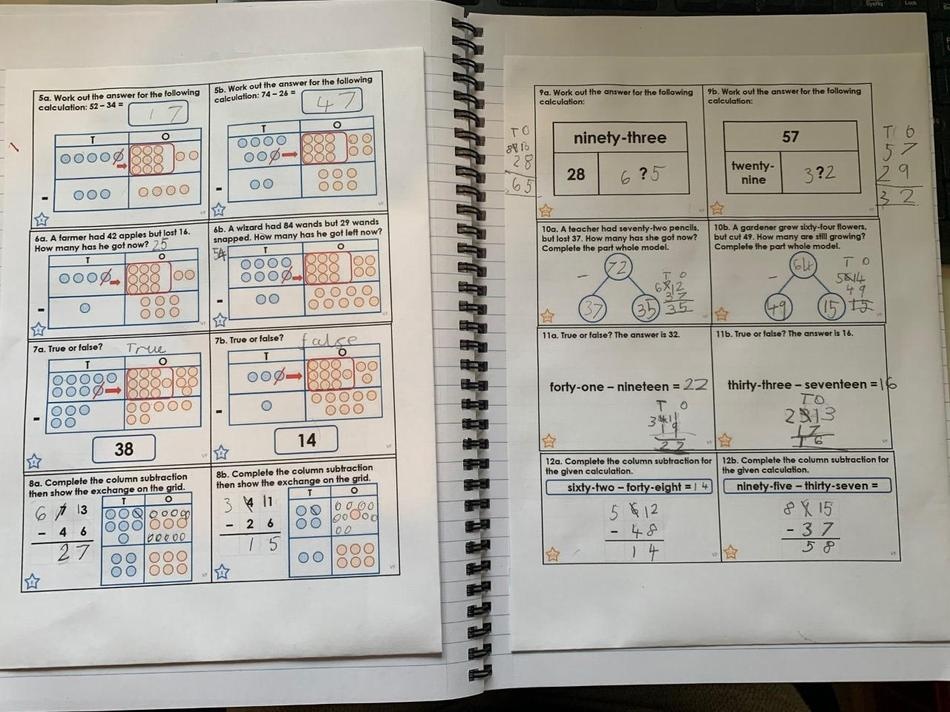 5a. Work out the answer for the following
calculation: 52 – 34 = 17
T O
-
5b. Work out the answer for the following
calculation: 74 – 26 = 47
T O
-
6a. A farmer had 42 apples but lost 16.
How many has he got now? 25
T O
-
6b. A wizard had 84 wands but 29 wands
snapped. How many has he got left now?
54
T O
-
7a. True or false? True
T O
-
38
7b. True or false? false
T O
-
14
8a. Complete the column subtraction
then show the exchange on the grid.
6 7 13
- 4 6
2 7
T O
8b. Complete the column subtraction
then show the exchange on the grid.
3 4 11
- 2 6
1 5
T O
9a. Work out the answer for the following
calculation:
ninety-three
28 6 ? 5
T O
28
65
9b. Work out the answer for the following
calculation:
57
twenty-
nine
3?2
T O
5 7
2 9
3 2
10a. A teacher had seventy-two pencils,
but lost 37. How many has she got now?
Complete the part whole model.
72
-
37 35
T O
6 12
3 7
3 5
10b. A gardener grew sixty-four flowers,
but cut 49. How many are still growing?
Complete the part whole model.
64
-
49 15
T O
5 14
4 9
1 5
11a. True or false? The answer is 32.
forty-one – nineteen = 22
T O
3 4 11
1 9
2 2
11b. True or false? The answer is 16.
thirty-three – seventeen = 16
T O
2 3 13
1 7
1 6
12a. Complete the column subtraction for
the given calculation.
sixty-two – forty-eight = 14
5 6 12
- 4 8
1 4
12b. Complete the column subtraction for
the given calculation.
ninety-five – thirty-seven =
8 9 15
- 3 7
5 8